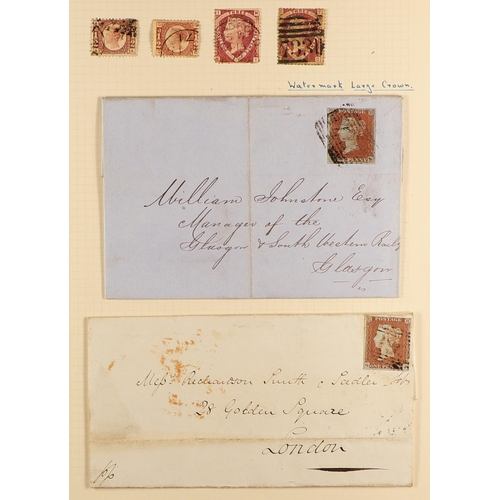 THREE
Watermark Large Crown.
POSTAGE
William Johnstone Esq
Manager of the
Glasgow & South Western Railw
Glasgow
POSTAGE
Messrs Richardson Smith & Sadler
28 Golden Square
London
p/p